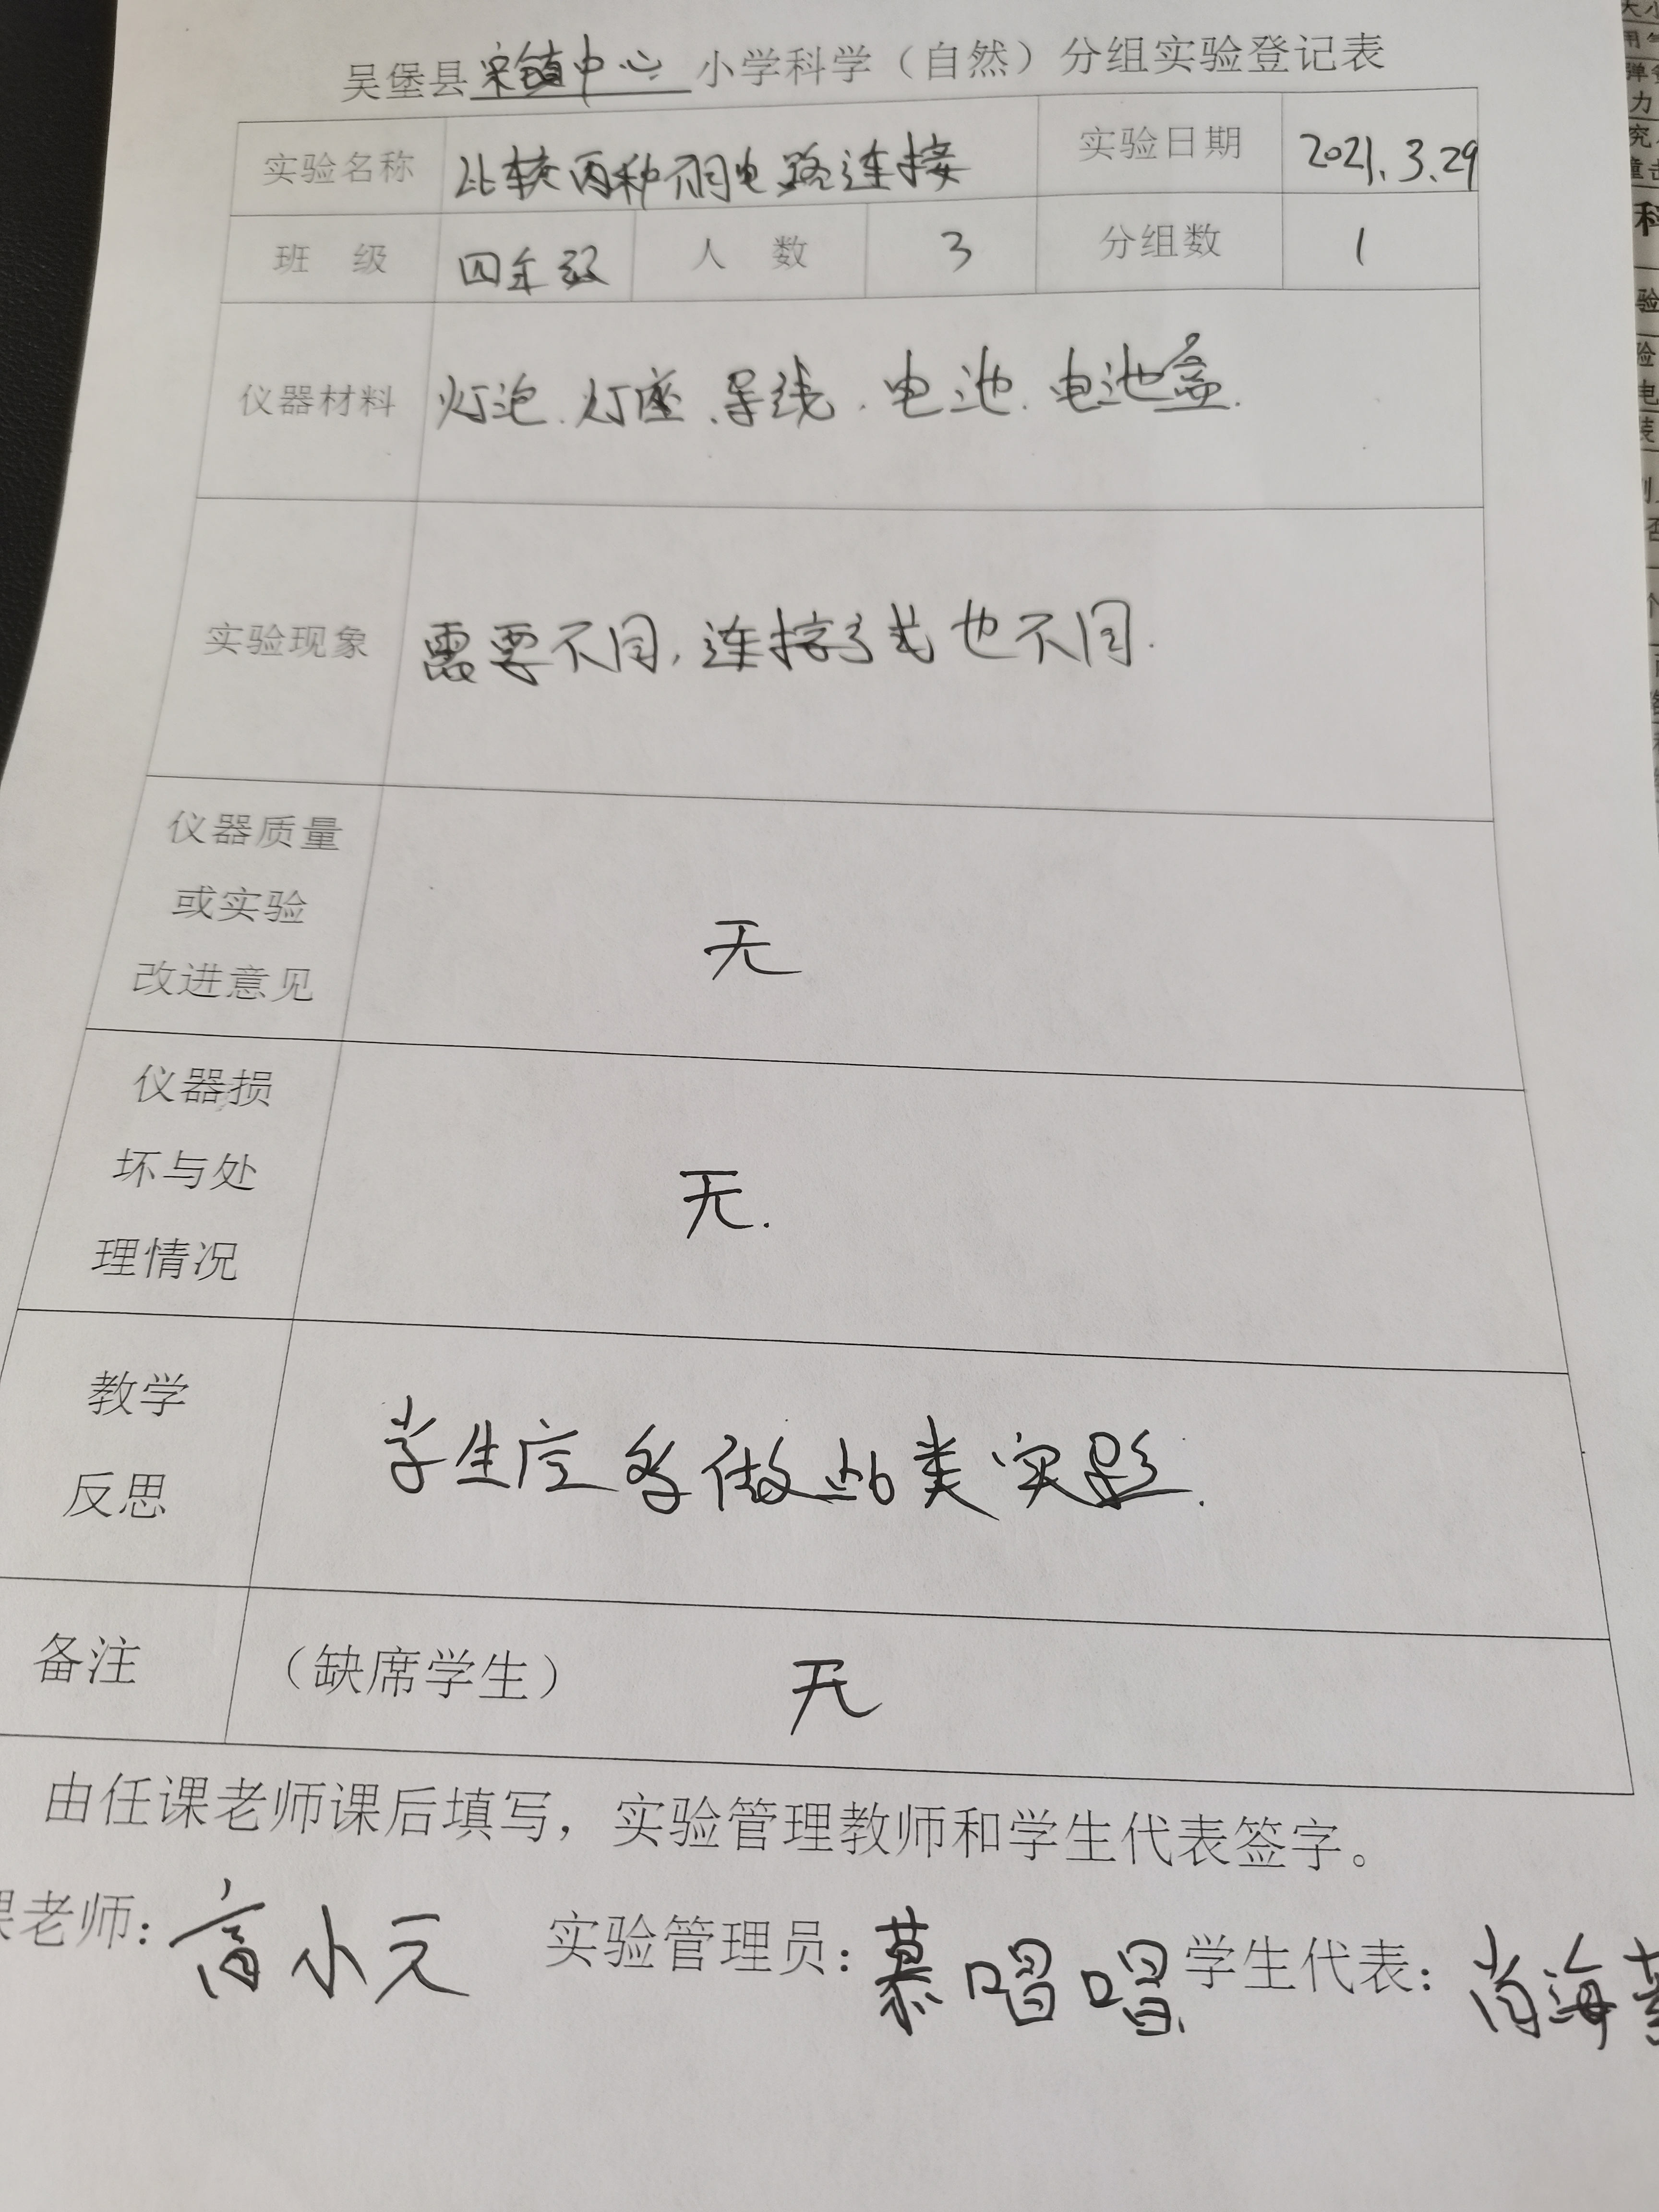 吴堡县宋镇中心小学科学（自然）分组实验登记表
实验名称 比较两种不同电路连接 实验日期 2021.3.29
班 级 四年级 人 数 3 分组数 1
仪器材料 灯泡、灯座、导线、电池、电池盒.
实验现象 需要不同，连接方式也不同.
仪器质量
或实验
改进意见
无
仪器损
坏与处
理情况
无.
教学
反思
学生应多做此类实验.
备注 （缺席学生） 无
由任课老师课后填写，实验管理教师和学生代表签字。
课老师：高小元 实验管理员：慕唱唱 学生代表：尚海